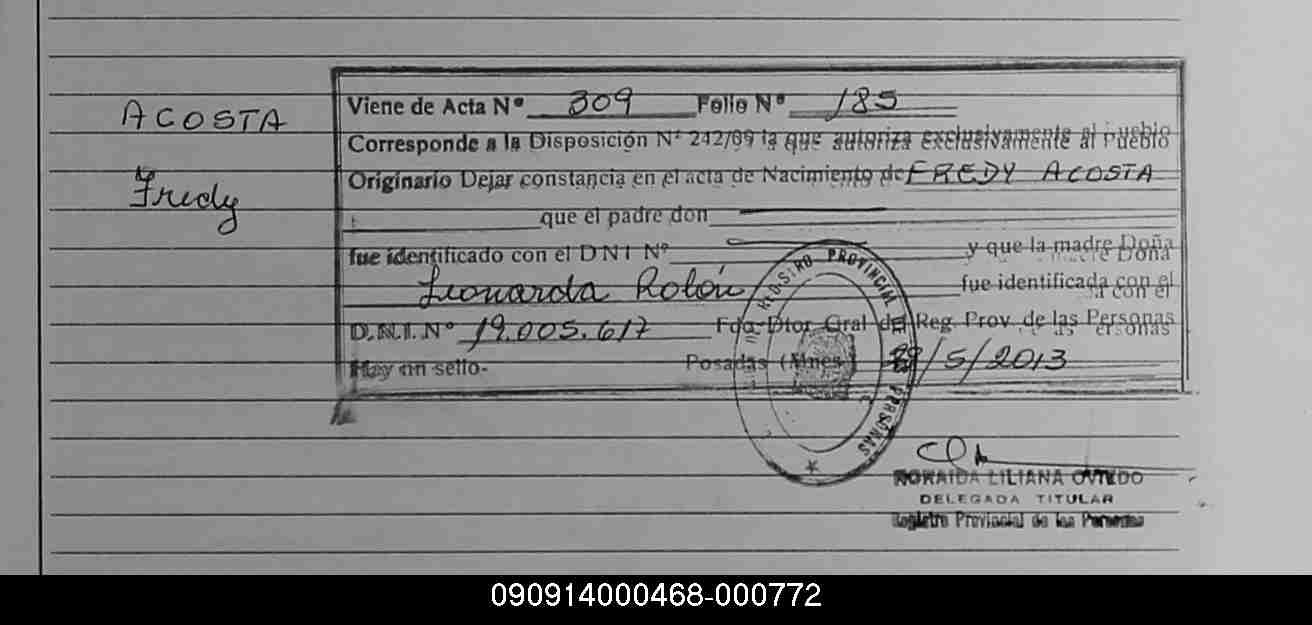 ACOSTA
Fredy
Viene de Acta Nº 309 Folio Nº 185
Corresponde a la Disposición Nº 242/89 la que autoriza exclusivamente al Pueblo
Originario Dejar constancia en el acta de Nacimiento de FREDY ACOSTA
que el padre don
fue identificado con el DNI Nº y que la madre Doña
Leonarda Rolón fue identificada con el
D.N.I. Nº 19.005.617 Fdo. Dtor Gral del Reg. Prov. de las Personas
Hay un sello- Posadas (Mnes) 29/5/2013
REGISTRO PROVINCIAL DE PERSONAS
LILIANA OVIEDO
DELEGADA TITULAR
Registro Provincial de las Personas
090914000468-000772